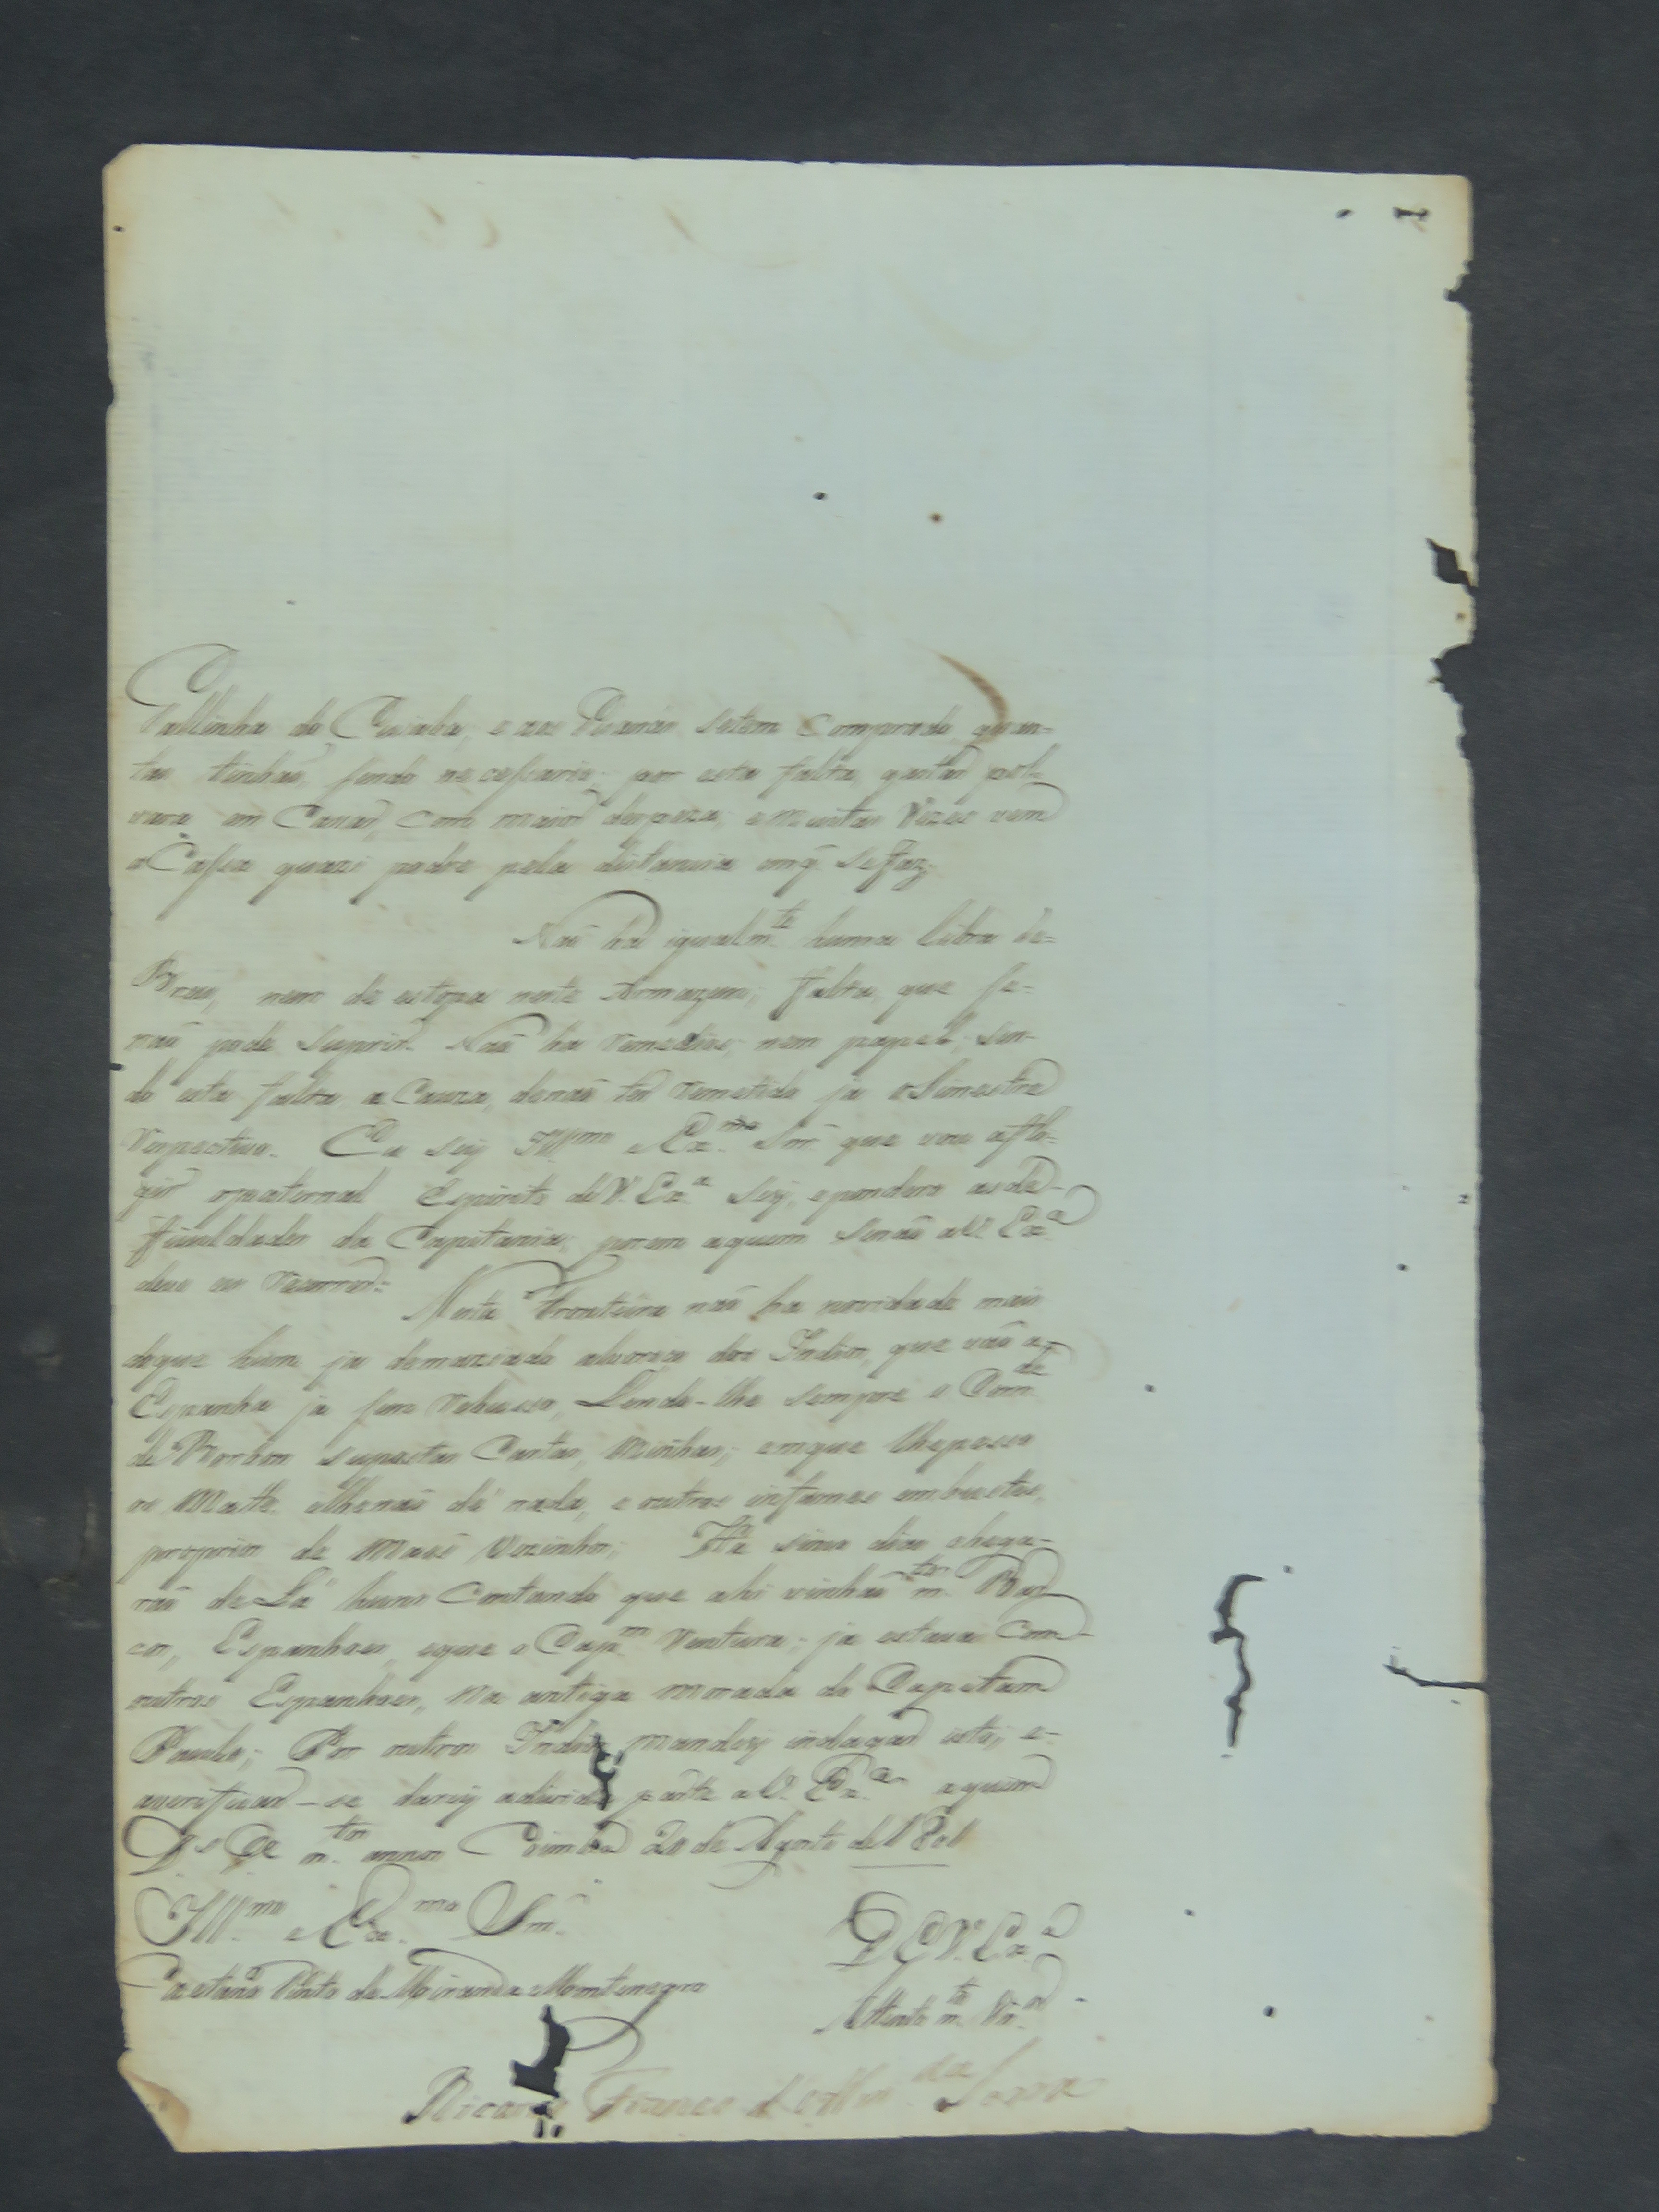 Gallinha do Cuiaba, e aos Guanás setem Comprado quan-
tas tinhaõ, sendo necessario, por esta falta, gastar pol-
vora em Casar, com maior despeza; e muitas Vezes vem
a Cassa quazi podre pela distancia emq̃ sefaz.
Naõ ha igualm.te huma libra de=
Breu, nem de estopa neste Armazem; falta, que se=
naõ pode suprir. Naõ ha remedios, nem papel, sen-
do esta falta, a Cauza, denaõ ter remetido ja o Simestre
respectivo. Eu sey Ill.mo e Ex.mo Snr̃ que vou afli=
gir opaternal Espirito de V. Ex.a sey, epondero as de-
ficuldades da Capitania; porem aquem senaõ a V. Ex.a
devo eu recorrer.=
Nesta Fronteira naõ ha novidade mais
doque hum ja demaziado alvoroço dos Indios, que vaõ a=
Espanha ja sem rebuço, Lendo-lhe sempre o Com.de
de Borbon supostas Cartas, Minhas; emque lhepesso
os Matte elhenaõ dê nada, e outros infames embustes,
proprios de Maôs Vezinhos; Ha sinco dias chega-
raõ de Lá huns Contando que ahi vinhaõ m.tos Bar
cos, Espanhoes, eque o Cap.m Ventura; ja estava Com-
outros Espanhoes, Na antiga morada do Capetam
Paulo; Por outros Indios mandey indagar isto, e-
averiguar-se darey adivida parte a V. Ex.a aquem
D.s G.e m.tos annos Coimbra 20 de Agosto de 1801
Ill.mo e Ex.mo Snr̃.
D E V. Ex.a
Caetano Pinto de Miranda Montenegro
Attento m.to Vn.or
Ricardo Franco d'Alm.da Serra